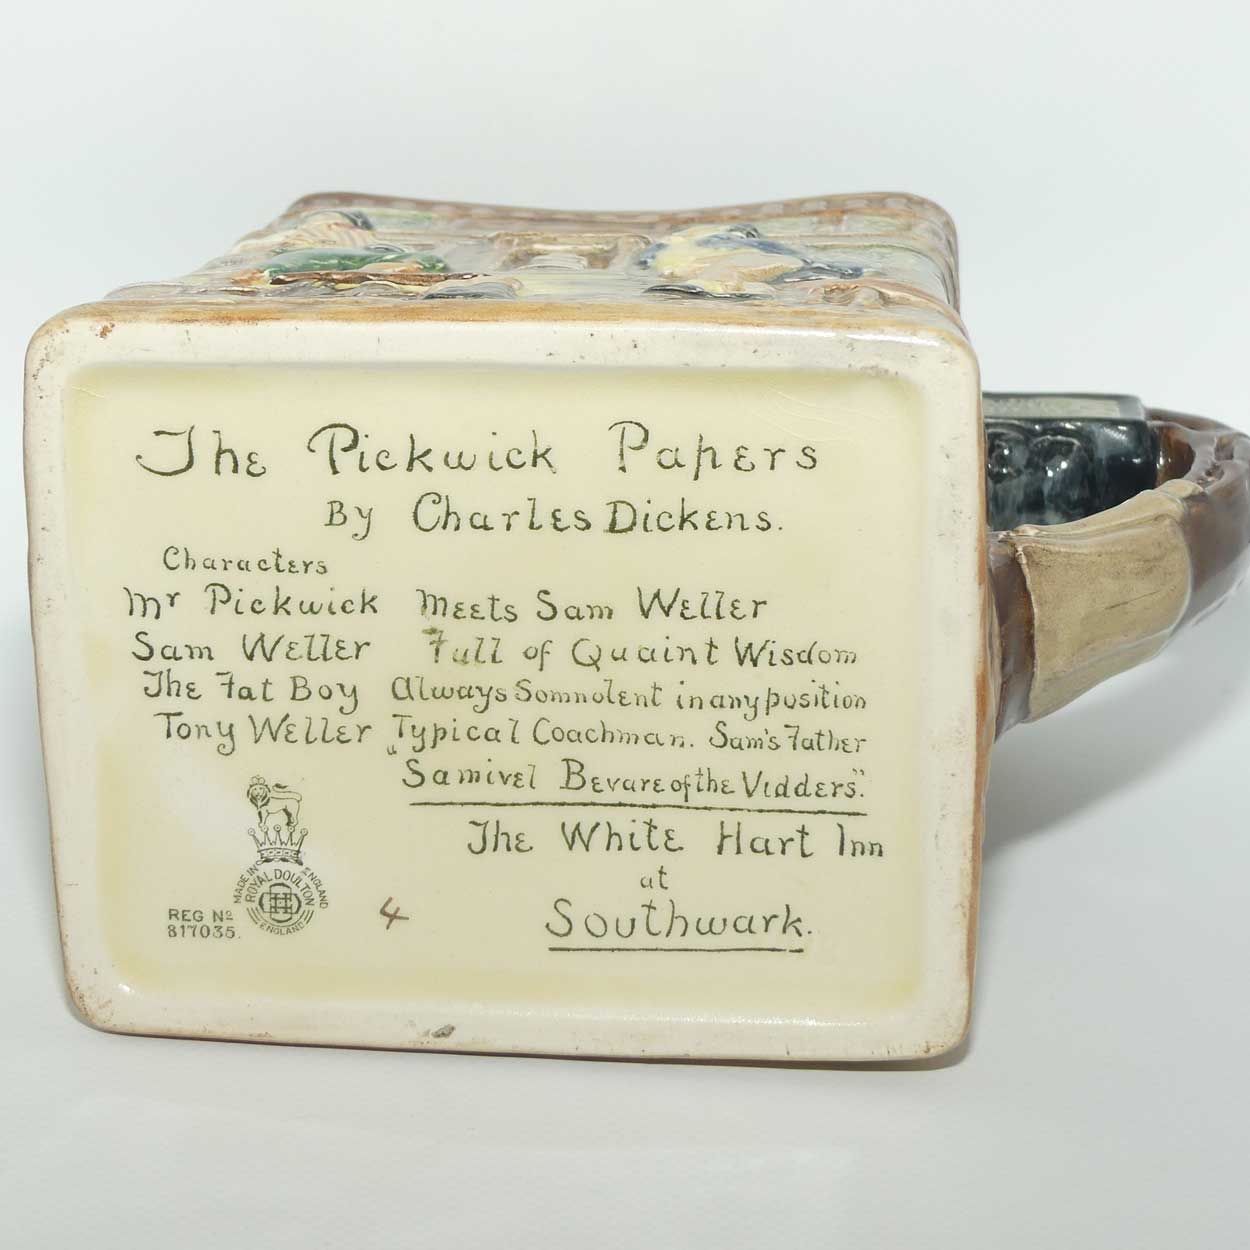 The Pickwick Papers
By Charles Dickens.
Characters
Mr Pickwick Meets Sam Weller
Sam Weller Full of Quaint Wisdom
The Fat Boy Always Somnolent in any position
Tony Weller Typical Coachman. Sam's Father
"Samivel Bevare of the Vidders".
The White Hart Inn
at
Southwark.
MADE IN ENGLAND
ROYAL DOULTON
ENGLAND
REG No
817035.
4